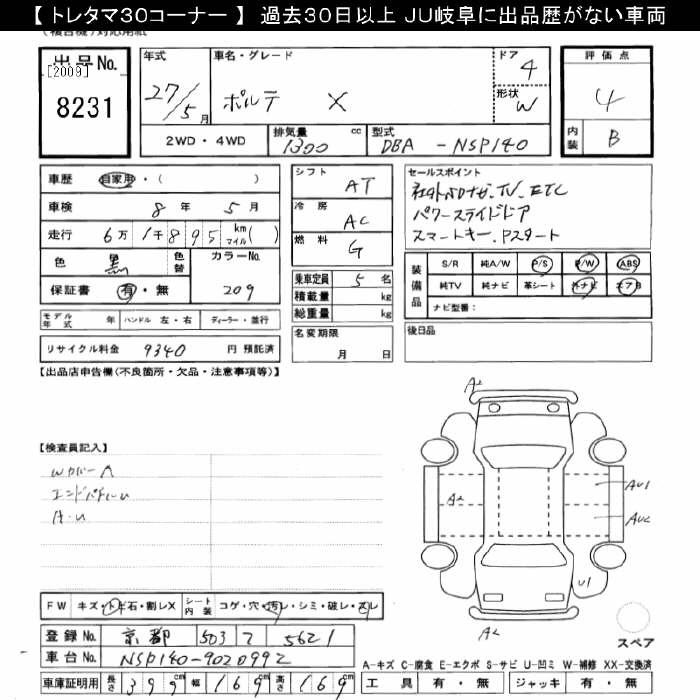 【 トレタマ30コーナー 】 過去30日以上 JU岐阜に出品歴がない車両
出品No. [2009] 8231
年式 27/5月
車名・グレード ポルテ X
ドア 4
形状 W
評価点 4
内装 B
2WD・4WD
排気量 1300 cc
型式 DBA - NSP140
車歴 自家用・( )
車検 8年 5月
走行 6万 1千 8 9 5 km マイル( )
色 黒 色替
カラーNo. 209
保証書 有・無
シフト AT
冷房 AC
燃料 G
乗車定員 5 名
積載量 kg
総重量 kg
セールスポイント
社外メモナビ、TV、ETC
パワースライドドア
スマートキー、Pスタート
装備品 S/R 純A/W P/S P/W ABS
純TV 純ナビ 革シート 外ナビ エアB
ナビ型番:
モデル年式 年 ハンドル 左・右 ディーラー・並行
名変期限 月 日
後日品
リサイクル料金 9340 円 預託済
【出品店申告欄(不良箇所・欠品・注意事項等)】
【検査員記入】
Wカバー A
A-U
A2
A2
AU1
AU2
U1
A2
FW キズ・トビ石・割レX シート内装 コゲ・穴・汚レ・シミ・破レ・スレ
スペア
登録No. 京都 503 ワ 5621
車台No. NSP140-9020992
A-キズ C-腐食 E-エクボ S-サビ U-凹ミ W-補修 XX-交換済
車庫証明用 長さ 399cm 幅 169cm 高さ 169cm
工具 有・無 ジャッキ 有・無